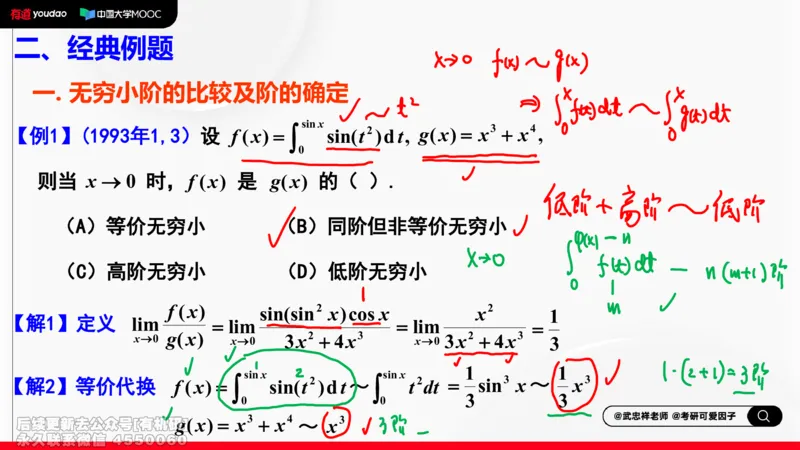 有道 youdao 中国大学MOOC
二、经典例题
x→0 f(x)~g(x)
一. 无穷小阶的比较及阶的确定
~ t²
⇒ ∫₀ˣ f(t)dt ~ ∫₀ˣ g(t)dt
【例1】(1993年1,3) 设 f(x)=∫₀^{sin x} sin(t²)dt, g(x)=x³+x⁴,
则当 x→0 时, f(x) 是 g(x) 的 ( ).
低阶+高阶~低阶
(A) 等价无穷小 (B) 同阶但非等价无穷小
(C) 高阶无穷小 (D) 低阶无穷小
x→0 ∫₀^{φ(x)} f(t)dt — n(m+1)阶
— n
m
1
【解1】定义 lim_{x→0} f(x)/g(x) = lim_{x→0} sin(sin² x)cos x/(3x²+4x³) = lim_{x→0} x²/(3x²+4x³) = 1/3
1 2
【解2】等价代换 f(x)=∫₀^{sin x} sin(t²)dt~∫₀^{sin x} t²dt = 1/3 sin³ x ~ 1/3 x³
1·(2+1)=3阶
g(x)=x³+x⁴ ~ x³ 3阶 —
后续更新去公众号[有机研]
永久联系微信 4550060
@武忠祥老师 @考研可爱因子